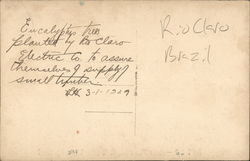 Eucalyptus tree
Planted by Rio Claro
Electric Co. to assure
themselves of supply of
small timber
3-1-1929
Rio Claro
Brazil